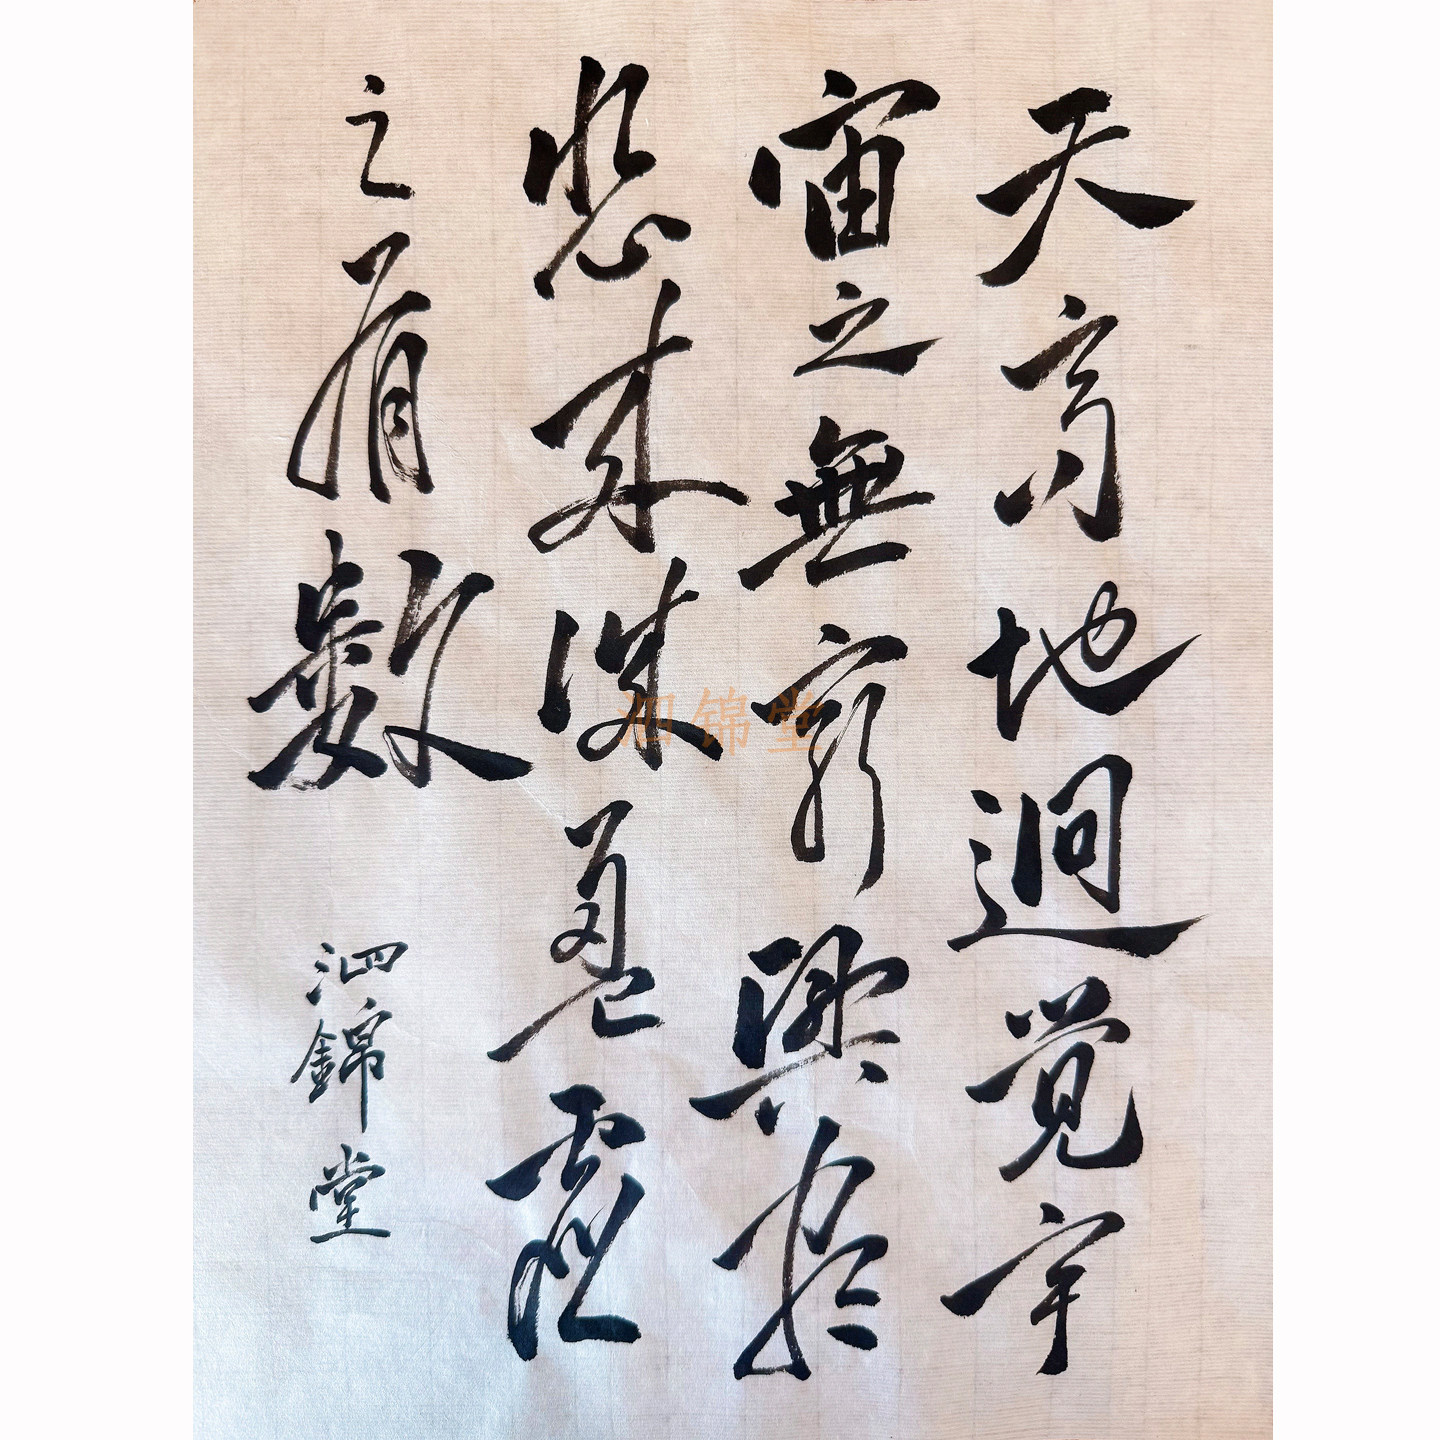 天高地迥觉宇
宙之無窮興尽
悲来识盈虚
之有數
泗錦堂
泗锦堂